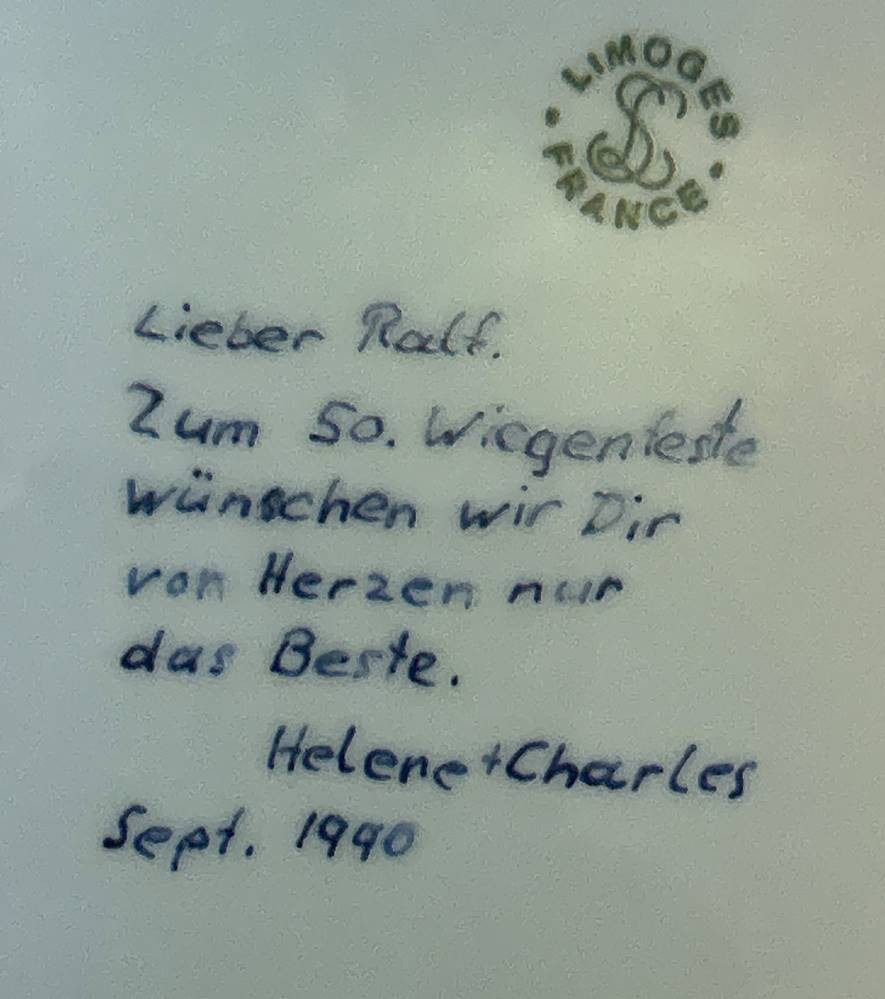 LIMOGES
FRANCE
Lieber Ralf.
Zum 50. Wiegenfeste
wünschen wir Dir
von Herzen nur
das Beste.
Helene + Charles
Sept. 1990